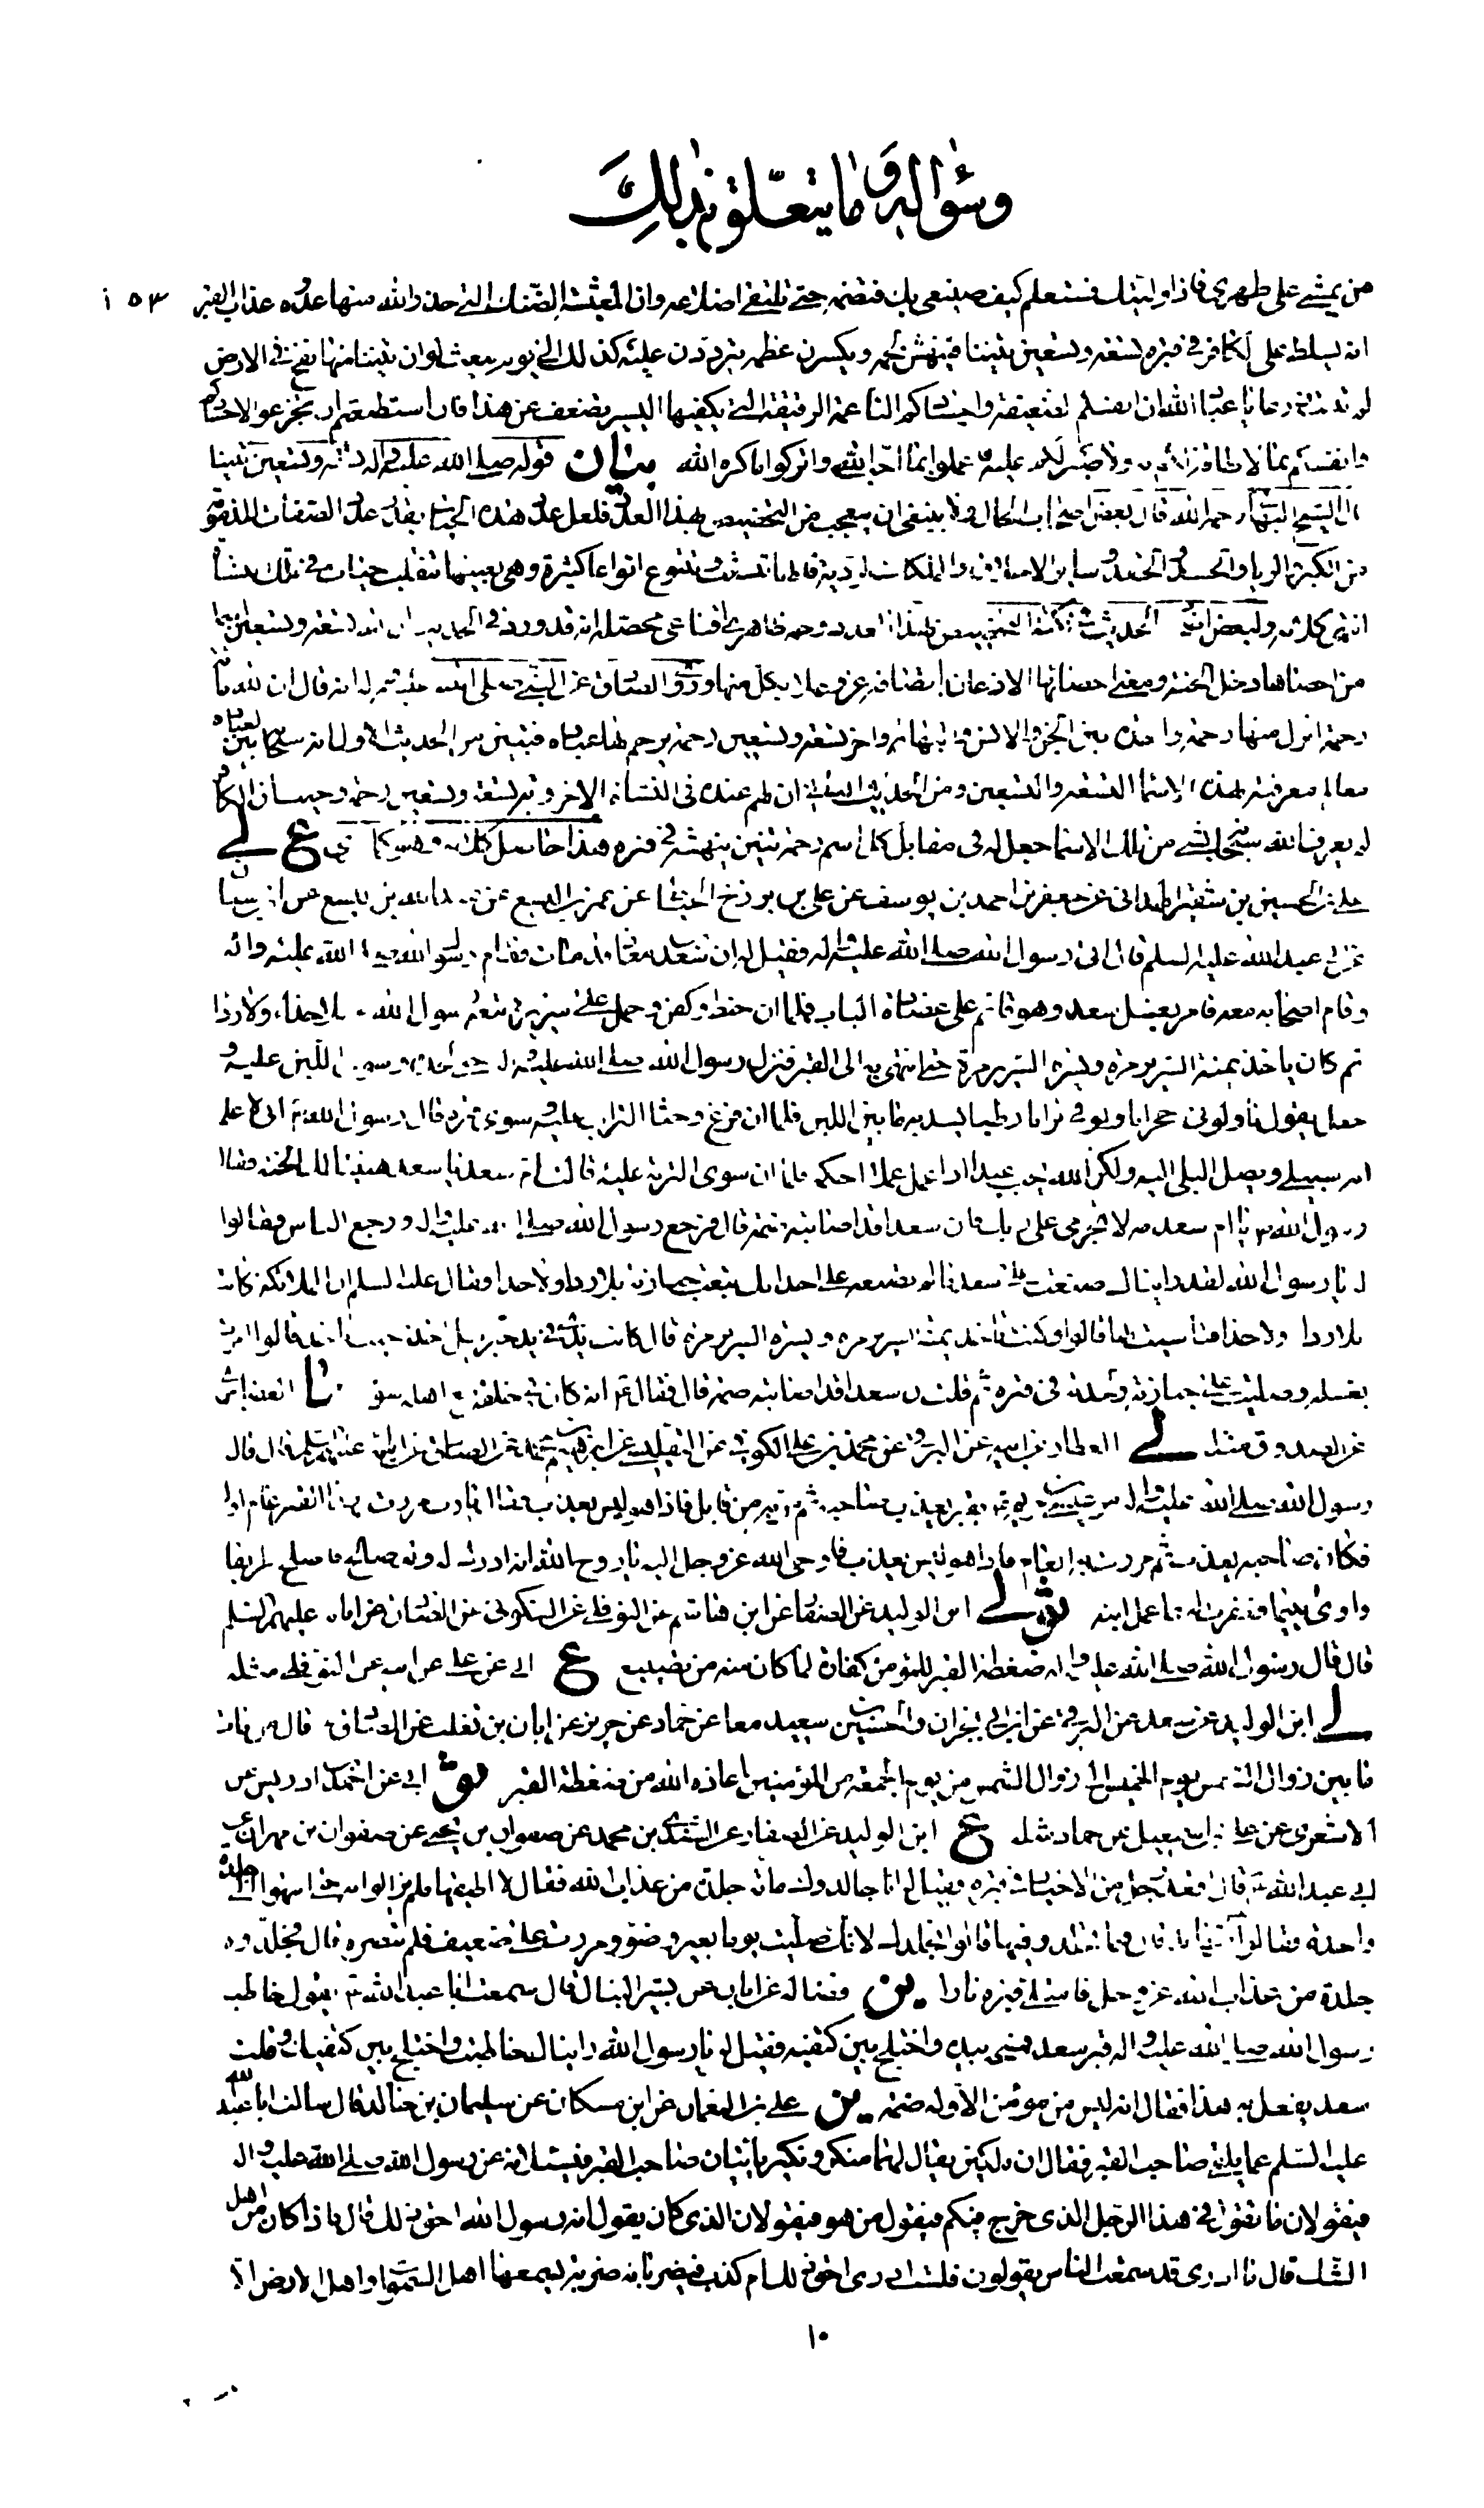 وسؤاله و ما يتعلّق بذلك
من يمشي على ظهري فاذا وليتك فستعلم كيف صنيعي بك فتضمه حتى تلتقي اضلاعه وان المعيشة الضنك التي حذر الله منها عدوه عذاب القبر ١٥٣
انه يسلط على الكافر في قبره تسعة وتسعين تنينا فينهشن لحمه ويكسرن عظمه يترددن عليه كذلك الى يوم يبعث لو ان تنينا منها نفخ في الارض
لم تنبت زرعا يا عباد الله ان انفسكم الضعيفة واجسادكم الناعمة الرقيقة التي يكفيها اليسير تضعف عن هذا فان استطعتم ان تجزعوا لاجسادكم
وانفسكم مما لا طاقة لكم به ولا صبر لكم عليه فاعملوا بما احب الله واتركوا ما كره الله بيان قوله صلى الله عليه واله تسعة وتسعين تنينا
قال الشيخ البهائي رحمه الله قال بعض اصحاب الحال ولا ينبغي ان يتعجب من التخصيص بهذا العدد فلعل عدد هذه الحيات بقدر عدد الصفات المذمومة
من الكبر والريا والحسد والحقد وساير الاخلاق والملكات الردية فانها تتشعب وتتنوع انواعا كثيرة وهي بعينها تنقلب حيات في تلك النشأة
انتهى كلامه ولبعض اصحاب الحديث في نكتة التخصيص بهذا العدد وجه ظاهري اقناعي محصله انه قد ورد في الحديث ان لله تسعة وتسعين اسما
من احصاها دخل الجنة ومعنى احصائها الاذعان باتصافه عز وعلا بكل منها وروى الصادق عن النبي صلى الله عليه واله انه قال ان لله مائة
رحمة انزل منها رحمة واحدة بين الجن والانس والبهائم واخر تسعة وتسعين رحمة يرحم بها عباده فتبين من الحديث الاول انه سبحانه بين لعباده
معالم معرفته بهذه الاسماء التسعة والتسعين ومن الحديث الثاني ان لهم عنده في النشأة الاخروية تسعة وتسعين رحمة وحيث ان الكافر
لم يعرف الله سبحانه بشي من تلك الاسماء جعل له في مقابل كل اسم رحمة تنين ينهشه في قبره هذا حاصل كلامه وهو كما ترى ع لي
علي بن الحسين بن شقير الهمداني عن جعفر بن احمد بن يوسف عن علي بن بزرج الحناط عن عمرو بن اليسع عن عبد الله بن اليسع عن ابن سنان
عن ابي عبد الله عليه السلم قال اتي رسول الله صلى الله عليه واله فقيل له ان سعد بن معاذ قد مات فقام رسول الله صلى الله عليه واله
وقام اصحابه معه فامر بغسل سعد وهو قائم على عضادة الباب فلما ان حنط وكفن وحمل على سريره تبعه رسول الله بلا حذاء ولا رداء
ثم كان ياخذ يمنة السرير مرة ويسرة السرير مرة حتى انتهى به الى القبر فنزل رسول الله صلى الله عليه واله حتى لحده وسوى اللبن عليه و
جعل يقول ناولوني حجرا ناولوني ترابا رطبا يسد به ما بين اللبن فلما ان فرغ وحثا التراب عليه وسوى قبره قال رسول الله اني لاعلم
انه سيبلى ويصل البلى اليه ولكن الله يحب عبدا اذا عمل عملا احكمه فلما ان سوى التربة عليه قالت ام سعد يا سعد هنيئا لك الجنة فقال
رسول الله يا ام سعد مه لا تجزمي على ربك فان سعدا قد اصابته ضمة قال فرجع رسول الله صلى الله عليه واله ورجع الناس فقالوا
له يا رسول الله لقد رايناك صنعت على سعد ما لم تصنعه على احد انك تبعت جنازته بلا رداء ولا حذاء فقال عليه السلم ان الملائكة كانت
بلا رداء ولا حذاء فتاسيت بها قالوا وكنت تاخذ يمنة السرير مرة ويسرة السرير مرة قال كانت يدي في يد جبرئيل اخذ حيث ياخذ قالوا امرت
بغسله وصليت على جنازته ولحدته في قبره ثم قلت ان سعدا قد اصابته ضمة قال فقال نعم انه كان في خلقه مع اهله سوء ما الغضائري
عن الصدوق مثله لي العطار عن ابيه عن البرقي عن محمد بن علي الكوفي عن التفليسي عن ابراهيم بن محمد عن الصادق عن ابائه عليهم السلم قال قال
رسول الله صلى الله عليه واله مر عيسى بن مريم بقبر يعذب صاحبه ثم مر به من قابل فاذا هو ليس يعذب فقال يا رب مررت بهذا القبر عام اول
فكان صاحبه يعذب ثم مررت به العام فاذا هو ليس يعذب فاوحى الله عز وجل اليه يا روح الله انه ادرك له ولد صالح فاصلح طريقا
واوى يتيما فغفرت له بما عمل ابنه ثو لي ابن الوليد عن الصفار عن ابن هاشم عن النوفلي عن السكوني عن الصادق عن ابائه عليهم السلم
قال قال رسول الله صلى الله عليه واله ضغطة القبر للمؤمن كفارة لما كان منه من تضييع ع ابي عن علي عن ابيه عن النوفلي مثله
لي ابن الوليد عن سعد عن البرقي عن ابن ابي نجران والحسين بن سعيد معا عن حماد عن حريز عن ابان بن تغلب عن الصادق قال من مات
ما بين زوال الشمس يوم الخميس الى زوال الشمس من يوم الجمعة من المؤمنين اعاذه الله من ضغطة القبر ثو ابي عن احمد بن ادريس عن
الاشعري عن علي بن اسمعيل عن حماد مثله ع ابن الوليد عن الصفار عن السندي بن محمد عن صفوان بن يحيى عن صفوان بن مهران عن
ابي عبد الله قال اقعد رجل من الاخيار في قبره فقيل له انا جالدوك مائة جلدة من عذاب الله فقال لا اطيقها فلم يزالوا به حتى انتهوا الى جلدة
واحدة فقالوا ليس منها بد قال فبما تجلدونيها قالوا نجلدك لانك صليت يوما بغير وضوء ومررت على ضعيف فلم تنصره قال فجلدوه
جلدة من عذاب الله عز وجل فامتلى قبره نارا ين فضالة عن ابان عن بشير النبال قال سمعت ابا عبد الله يقول خاطب
رسول الله صلى الله عليه واله قبر سعد فمسحه بيده واختلج بين كتفيه فقيل له يا رسول الله رايناك خاطبت واختلج بين كتفيك وقلت
سعد يفعل به هذا فقال انه ليس من مؤمن الا وله ضمة ين علي بن النعمان عن ابن مسكان عن سليمان بن خالد قال سالت ابا عبد الله
عليه السلم عما يلقى صاحب القبر فقال ان ملكين يقال لهما منكر ونكير ياتيان صاحب القبر فيسئلانه عن رسول الله صلى الله عليه واله
فيقولان ما تقول في هذا الرجل الذي خرج فيكم فيقول من هو فيقولان الذي كان يقول انه رسول الله احق ذلك قال فاذا كان من اهل
الشك قال ما ادري قد سمعت الناس يقولون فلست ادري احق ذلك ام كذب فيضربانه ضربة يسمعها اهل السموات واهل الارض الا
١٠